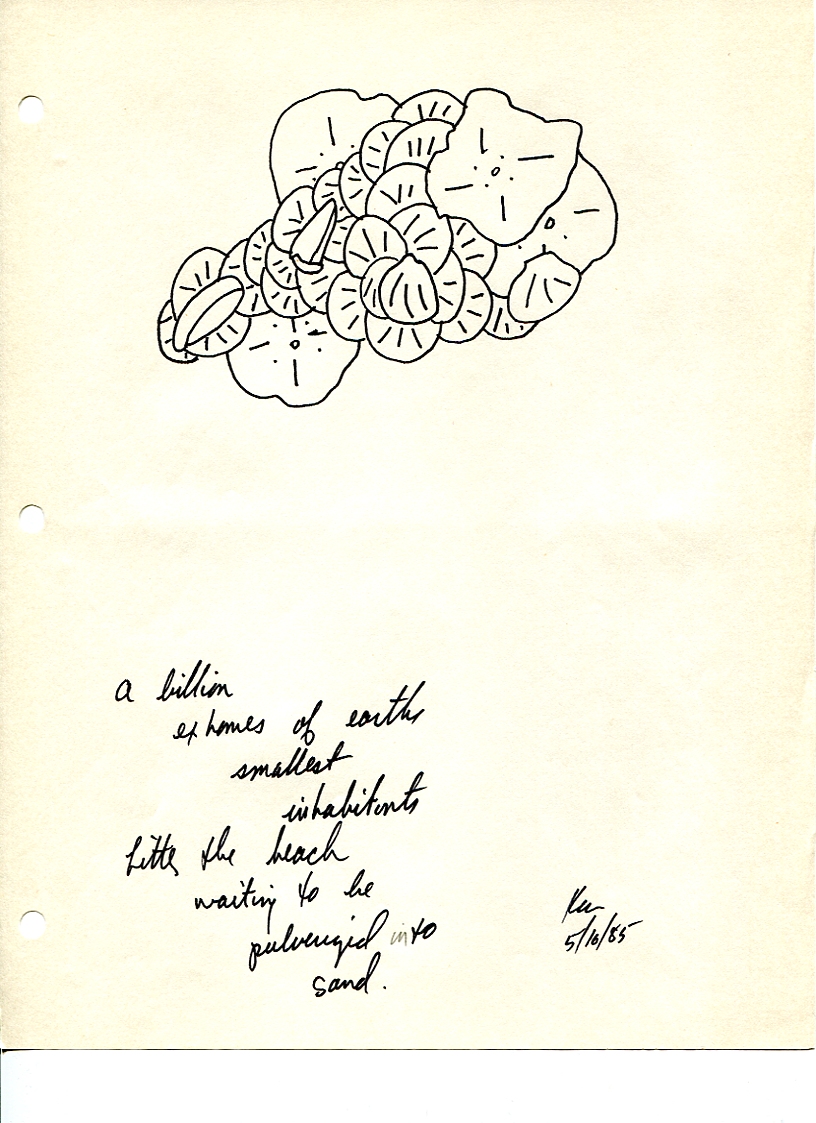 a billion
ex homes of earths
smallest
inhabitents
litter the beach
waiting to be
pulverizid into
sand.
Ken
5/16/85